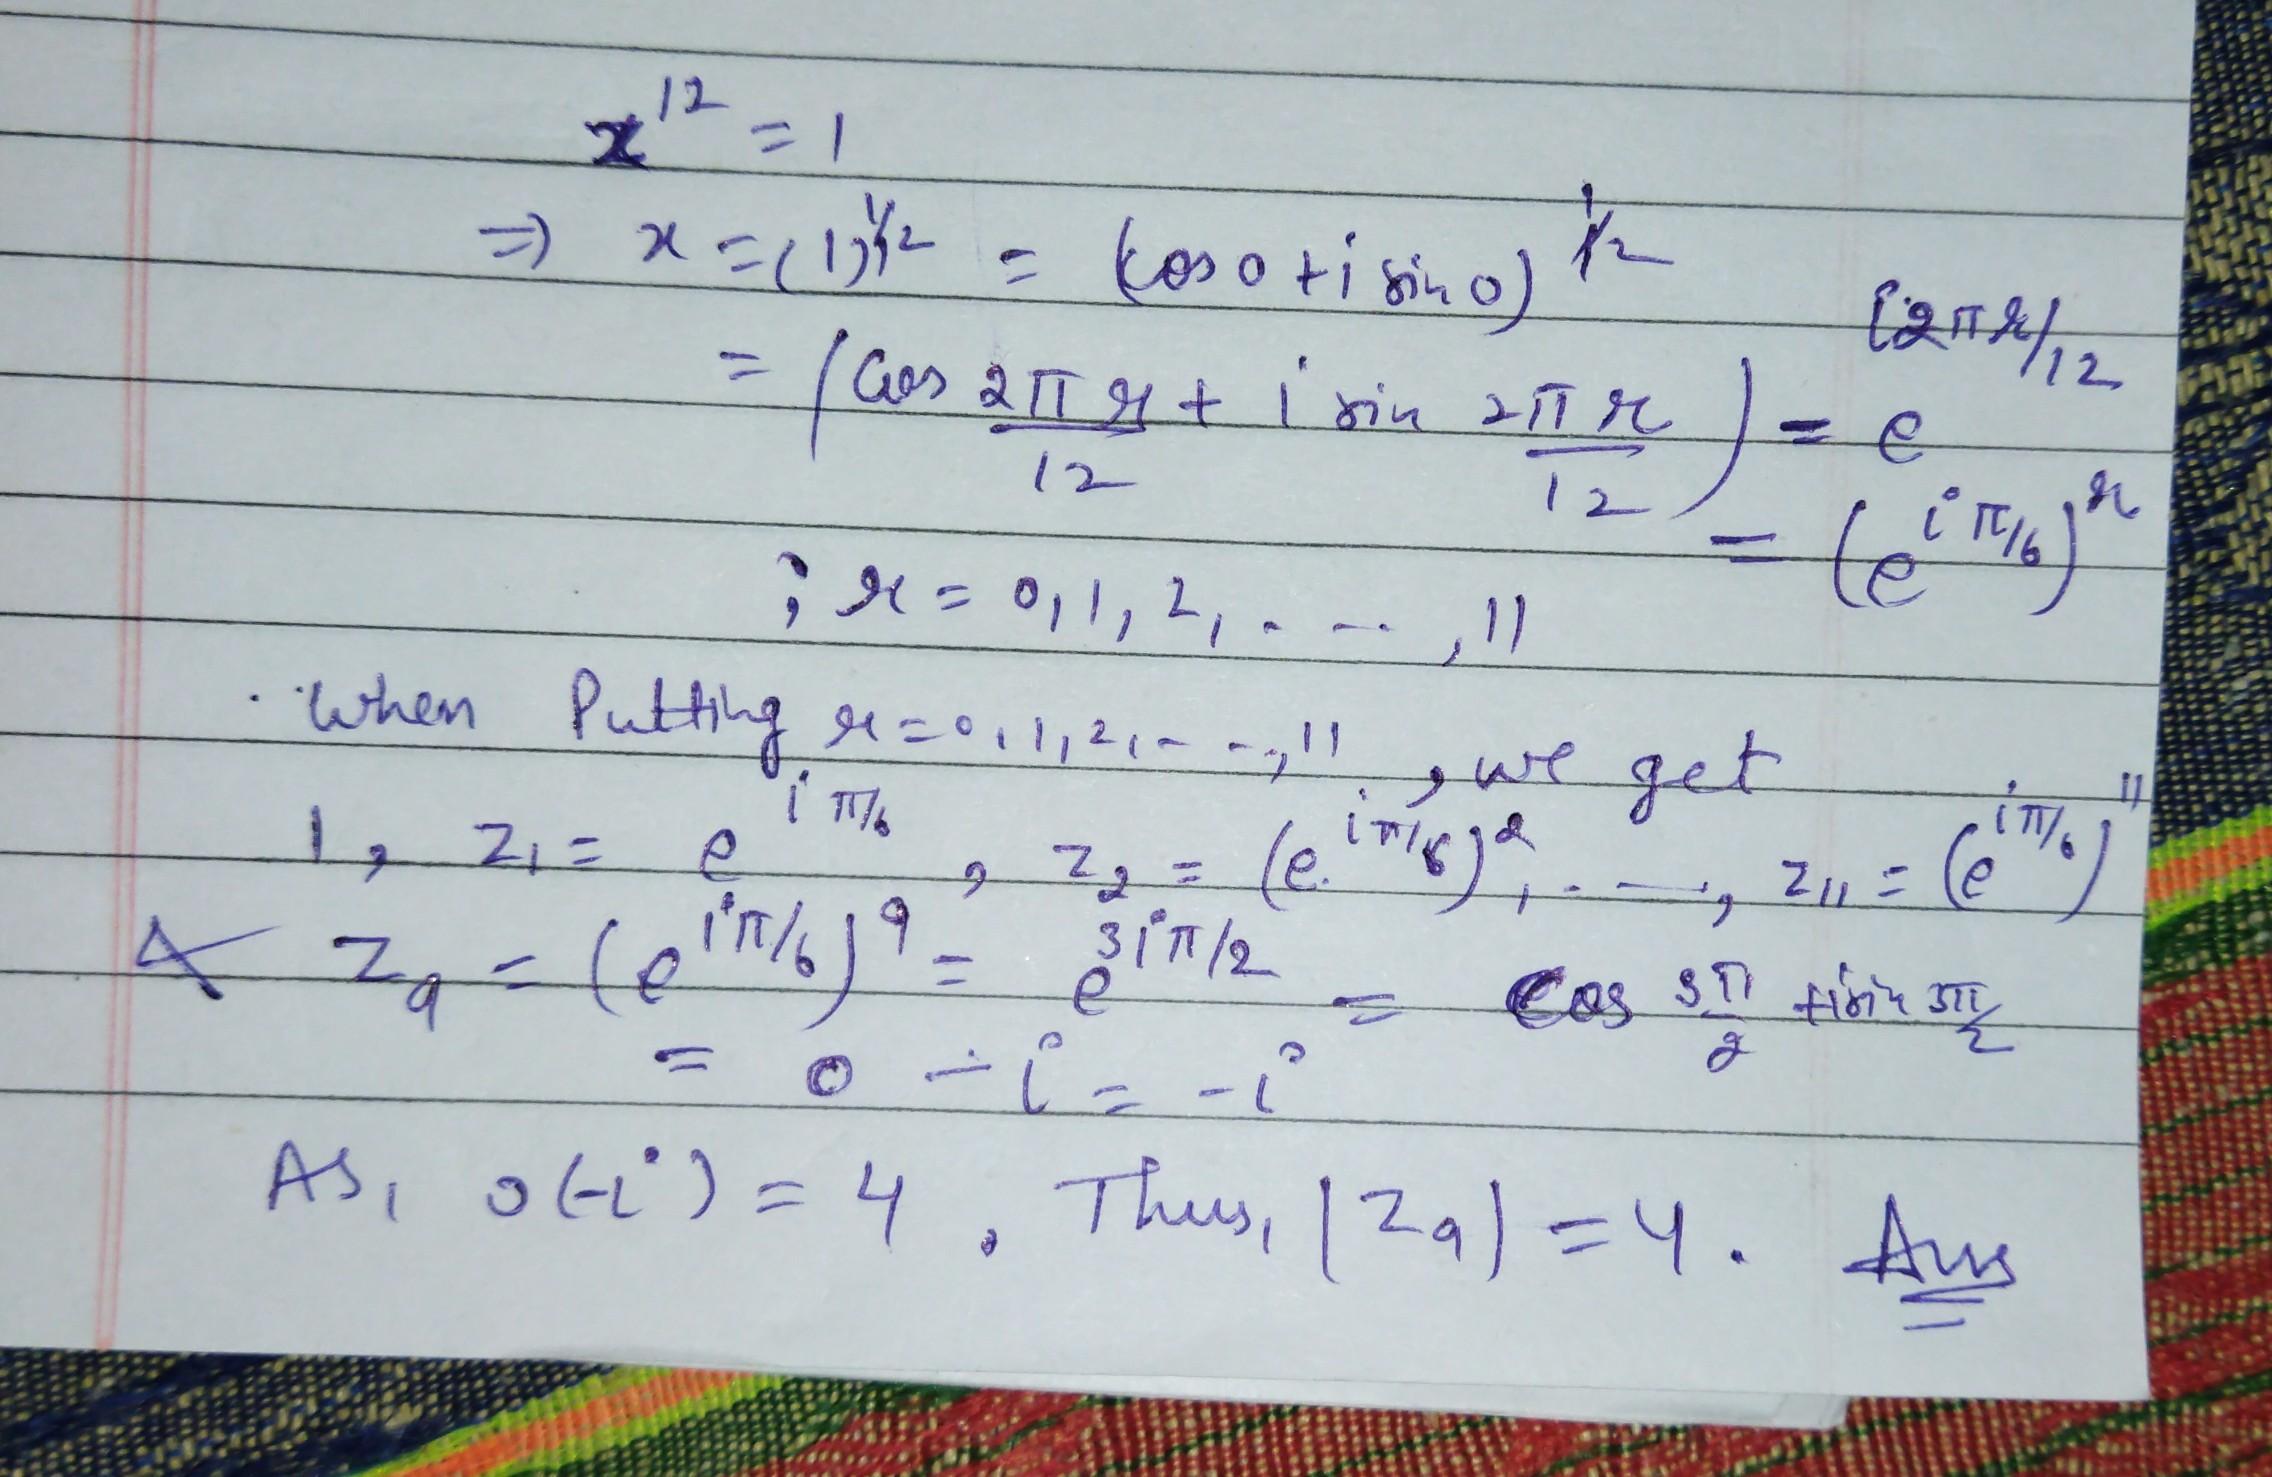 x^12 = 1
⇒ x = (1)^1/12 = (cos 0 + i sin 0)^1/12
= (cos 2πr/12 + i sin 2πr/12) = e^i2πr/12
= (e^iπ/6)^r
; r = 0, 1, 2, . -- , 11
when Putting r = 0, 1, 2, - - -, 11 , we get
1, z1 = e^iπ/6 , z2 = (e^iπ/6)^2, . —, z11 = (e^iπ/6)^11
& z9 = (e^iπ/6)^9 = e^3iπ/2 = cos 3π/2 + i sin 3π/2
= 0 - i = -i
As, o(-i) = 4 , Thus, |z9| = 4 . Ans